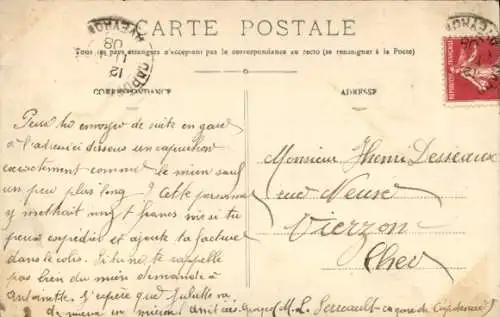 CARTE POSTALE
Tous les pays étrangers n'acceptent pas la correspondance au recto (se renseigner à la Poste)
CORRESPONDANCE
ADRESSE
Peux tu envoyer de suite en gare
à l'adresse ci dessous un capuchon
exactement comme le mien sauf
un peu plus long? Cette personne
y mettrait 20 francs vois si tu
peux expédier et ajoute la facture
dans le colis. Si tu ne te rappelle
pas bien du mien demande à
Antoinette. J'espère que Juliette va
de mieux en mieux.
Monsieur Henri Desseaux
rue Neuve
Vierzon
Cher
(M. L. Perreault en gare de Capdenac)
12
11
08
AVEYRON